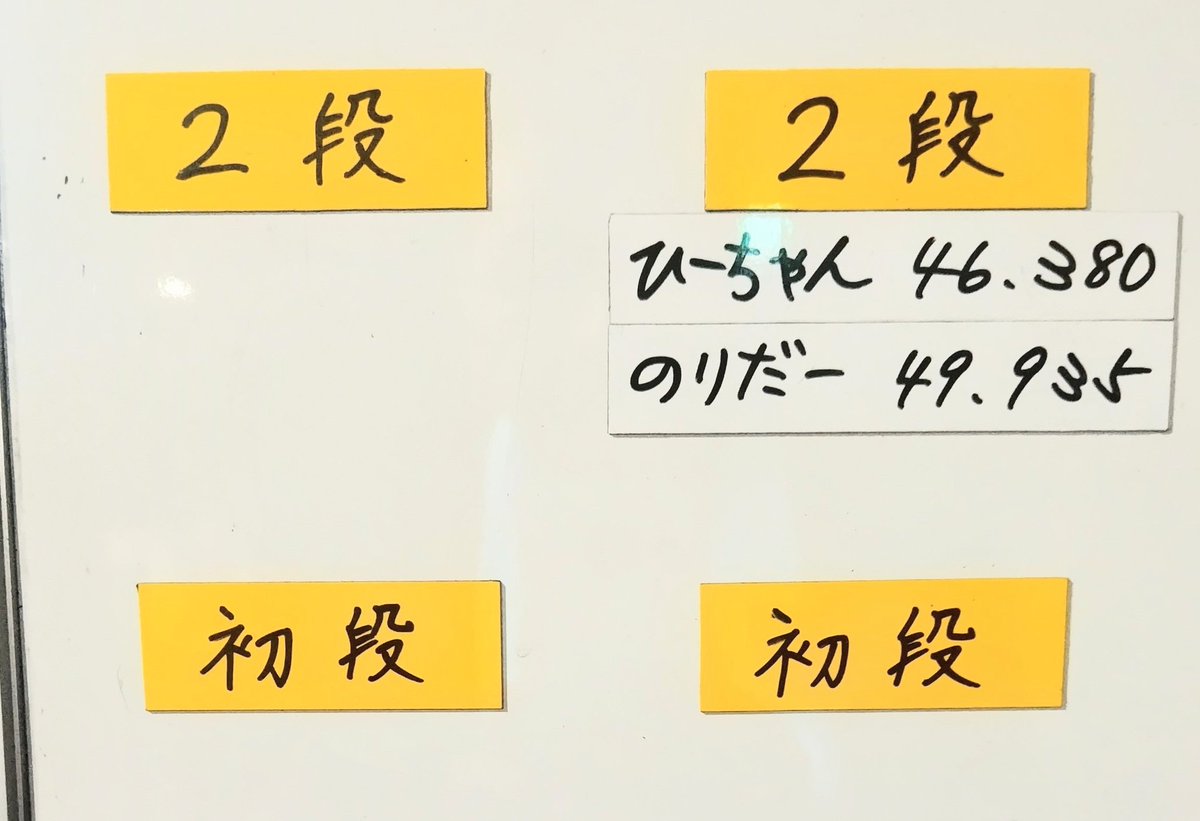 2段
2段
ひーちゃん 46.380
のりだー 49.935
初段
初段